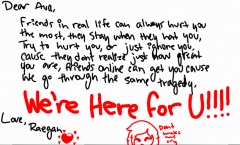 Dear Ava,
Friends in real life can always hurt you
the most, they stay when they hat you,
Try to hurt you, or just ignore you,
cause they dont realize just how great
you are, friends online can get you cause
we go through the same tragedy,
We're Here for U!!!!
Love,
Raegan
Dont
make
me